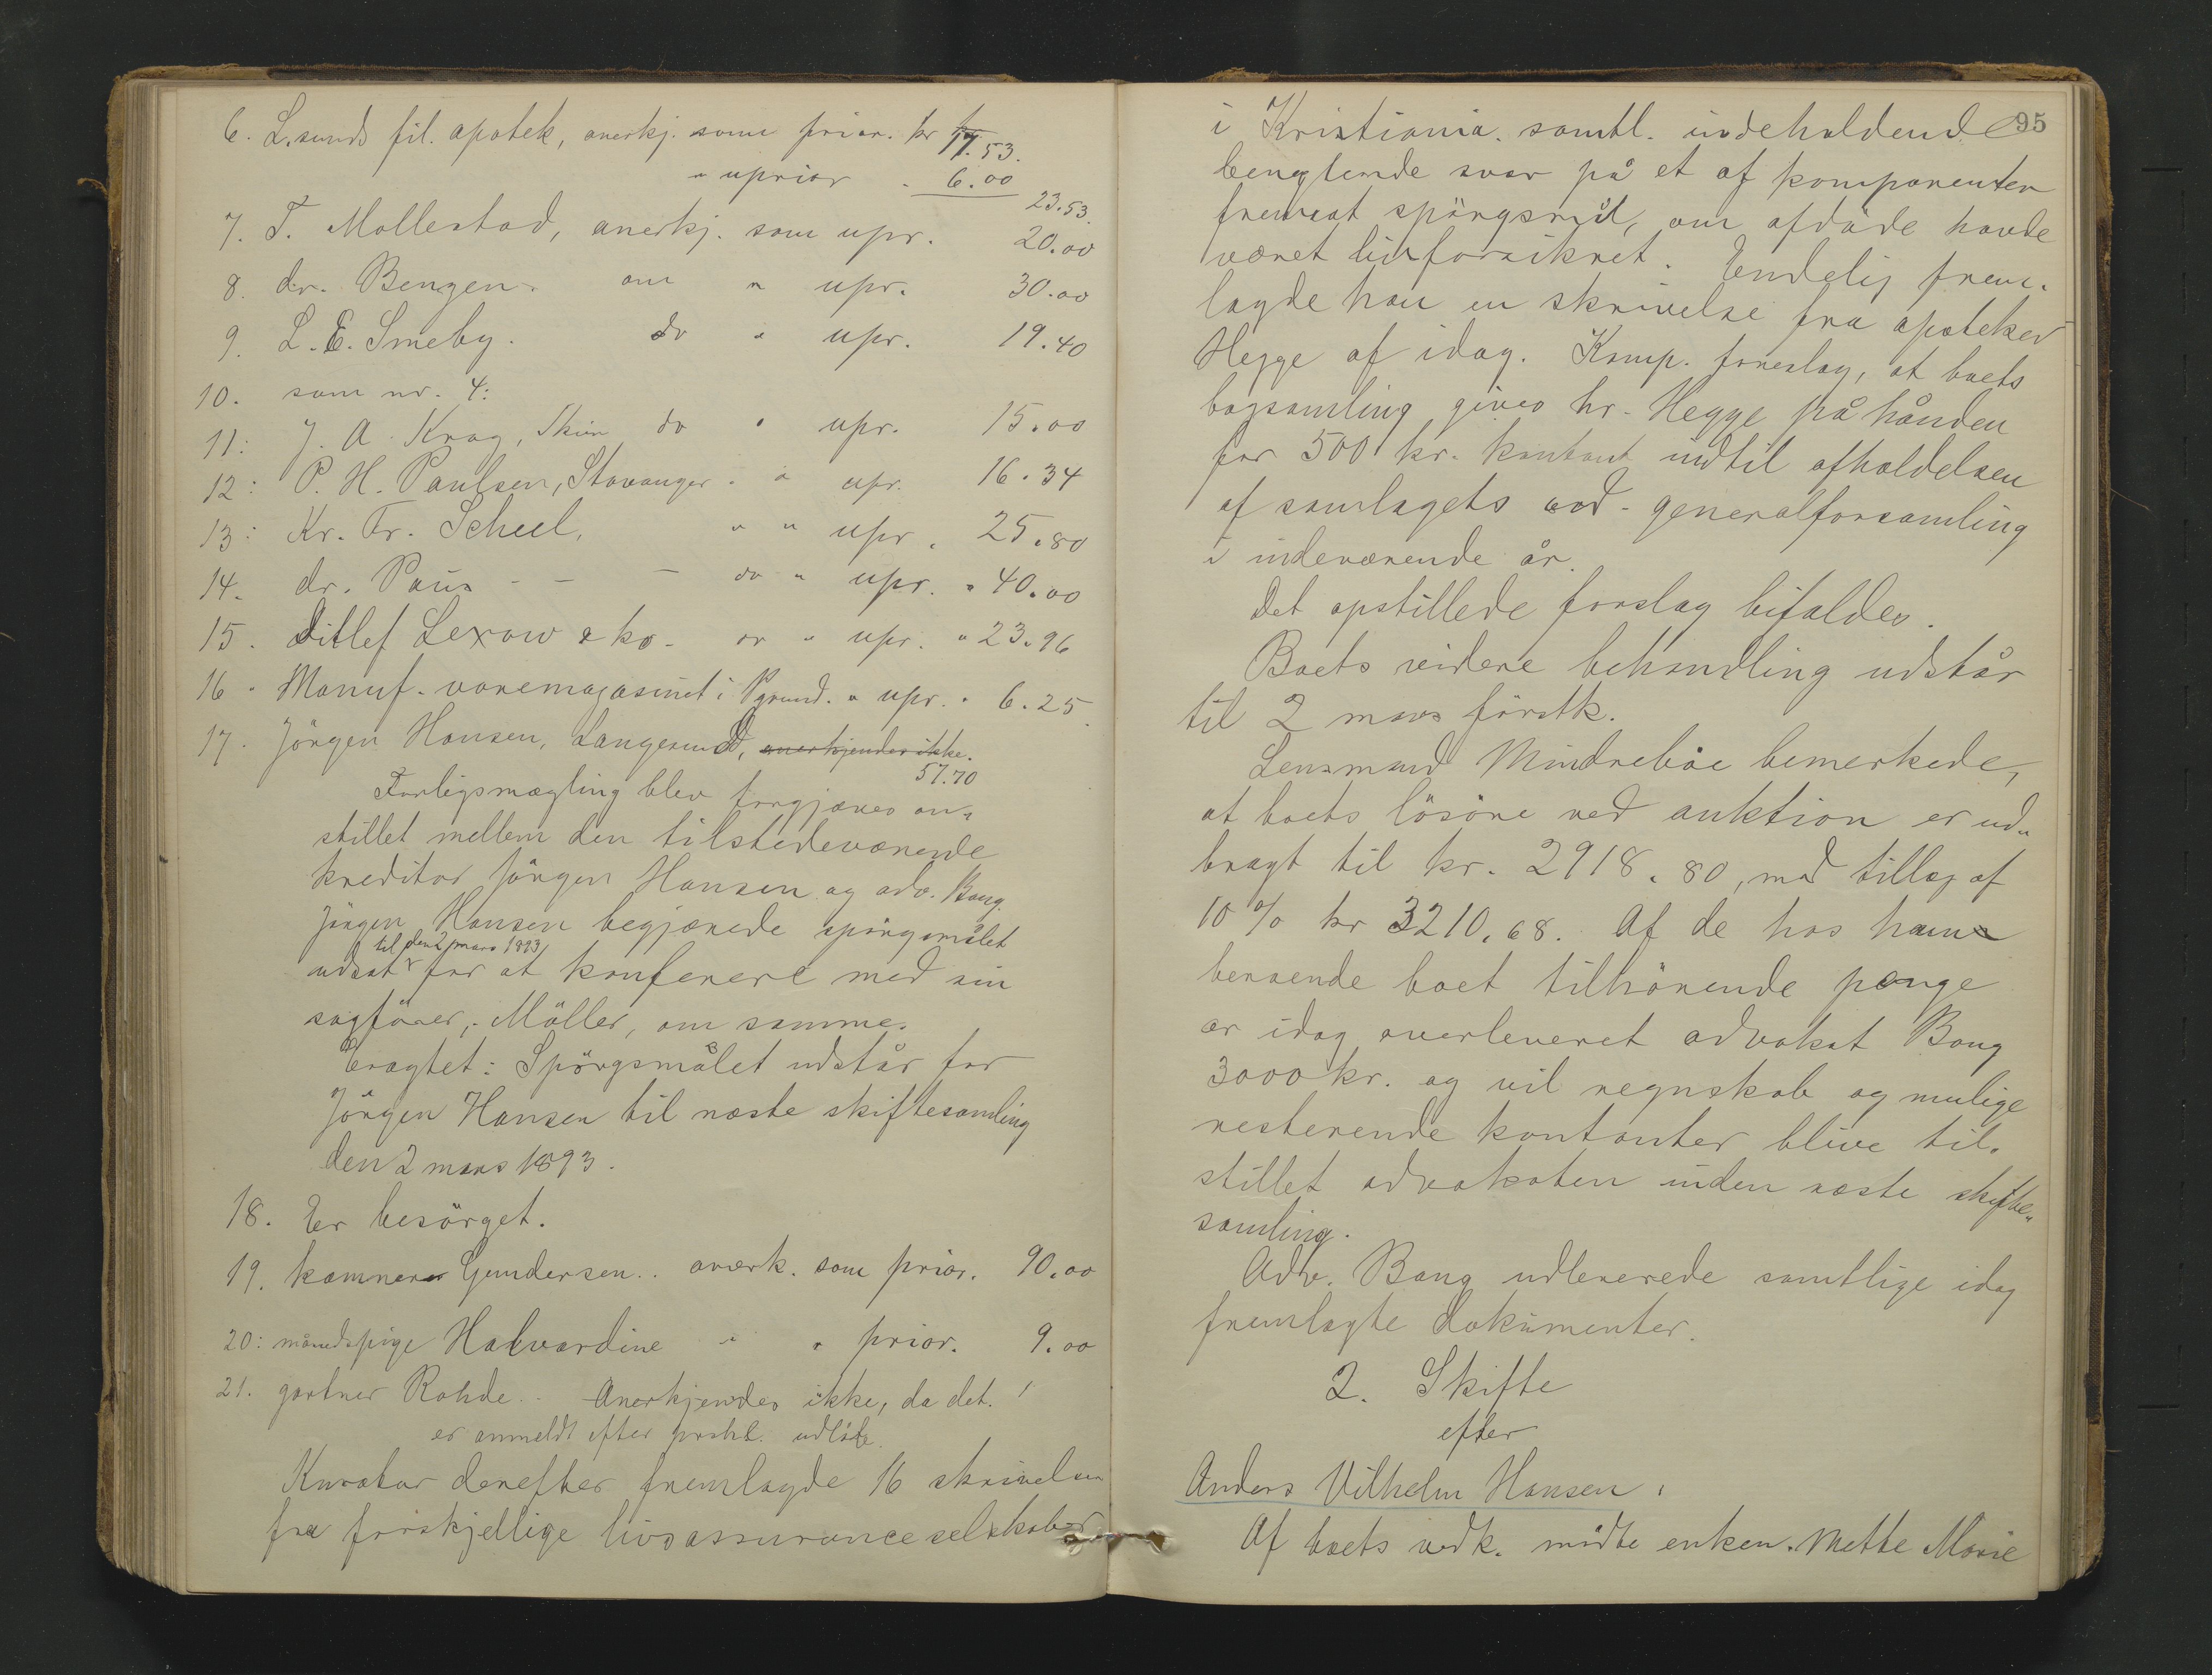 6. L.sunds fil. apotek, anerkj. som prior. kr 17.53.
" uprior " 6.00
23.53.
7. T. Mollestad, anerkj. som upr. 20.00
8. dr. Bengen. om " upr. 30.00
9. L. E. Smeby. do " upr. 19.40
10. som nr. 4:
11: J. A. Krog, Skien do " upr. 15.00
12: P. H. Paulsen, Stavanger. " upr. 16.34
13: Kr. Fr. Scheel, " " upr. 25.80
14. dr. Paus - - - do " upr. " 40.00
15. Ditlef Lexow & ko. " upr. " 23.96
16. Manuf. varemagasinet i Pgrund. " upr. " 6.25
17. Jörgen Hansen, Langesund, anerkjendes ikke.
57.70
Forligsmægling blev forgjæves an-
stillet mellem den tilstedeværende
kreditor Jörgen Hansen og adv. Bang.
Jörgen Hansen begjærede spörgsmålet
til den 2 mars 1893
udsat for at konferere med sin
sagförer, Möller, om samme.
Eragtet: Spörgsmålet udstår for
Jörgen Hansen til næste skiftesamling
den 2 mars 1893.
18. Er besörget.
19. kæmner Gundersen.. anerk. som prior. 90.00
20: månedspige Halvardine " " prior. 9.00
21. gartner Rohde.. Anerkjendes ikke, da det.
er anmeldt efter prokl. udlöb.
Kurator derefter fremlagde 16 skrivelser
fra forskjellige livsassuranceselskaber
95
i Kristiania. samtl. indeholdende
benegtende svar på et af komparenten
fremsat spörgsmål, om afdöde havde
været livsforsikret. Endelig frem-
lagde han en skrivelse fra apoteker
Hegge af idag. Komp. foreslog, at boets
bogsamling gives hr. Hegge på hånden
for 500 kr. kontant indtil afholdelsen
af samlagets ord. generalforsamling
i indeværende år.
Det opstillede forslag bifaldes.
Boets videre behandling udstår
til 2 mars förstk.
Lensmand Mindreböe bemerkede,
at boets lösöre ved auktion er ud-
bragt til kr. 2918.80, med tillæg af
10 % kr 3210.68. Af de hos ham
beroende boet tilhörende penge
er idag overleveret advokat Bang
3000 kr. og vil regnskab og mulige
resterende kontanter blive til-
stillet advokaten inden næste skifte-
samling.
Adv. Bang udleverede samtlige idag
fremlagte dokumenter.
2. Skifte
efter
Anders Vilhelm Hansen.
Af boets vedk. mödte enken. Mette Marie